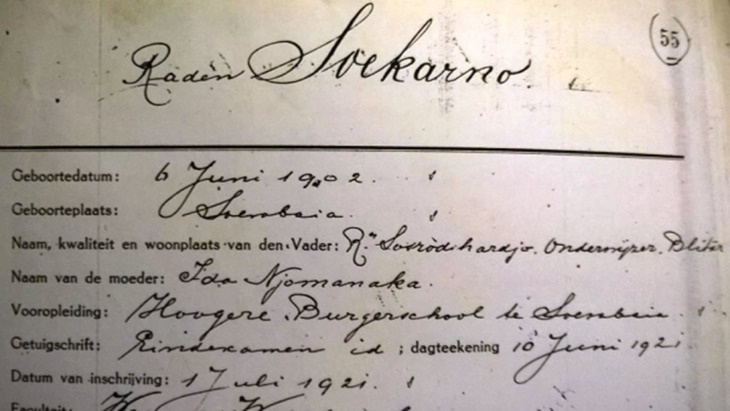 55
Raden Soekarno.
Geboortedatum: 6 Juni 1902.
Geboorteplaats: Soerabaia.
Naam, kwaliteit en woonplaats van den Vader: Rn Sosrodihardjo. Onderwijzer. Blitar
Naam van de moeder: Ida Njomanaka.
Vooropleiding: Hoogere Burgerschool te Soerabaia.
Getuigschrift: Eindexamen id; dagteekening 10 Juni 1921
Datum van inschrijving: 1 Juli 1921.
Faculteit: